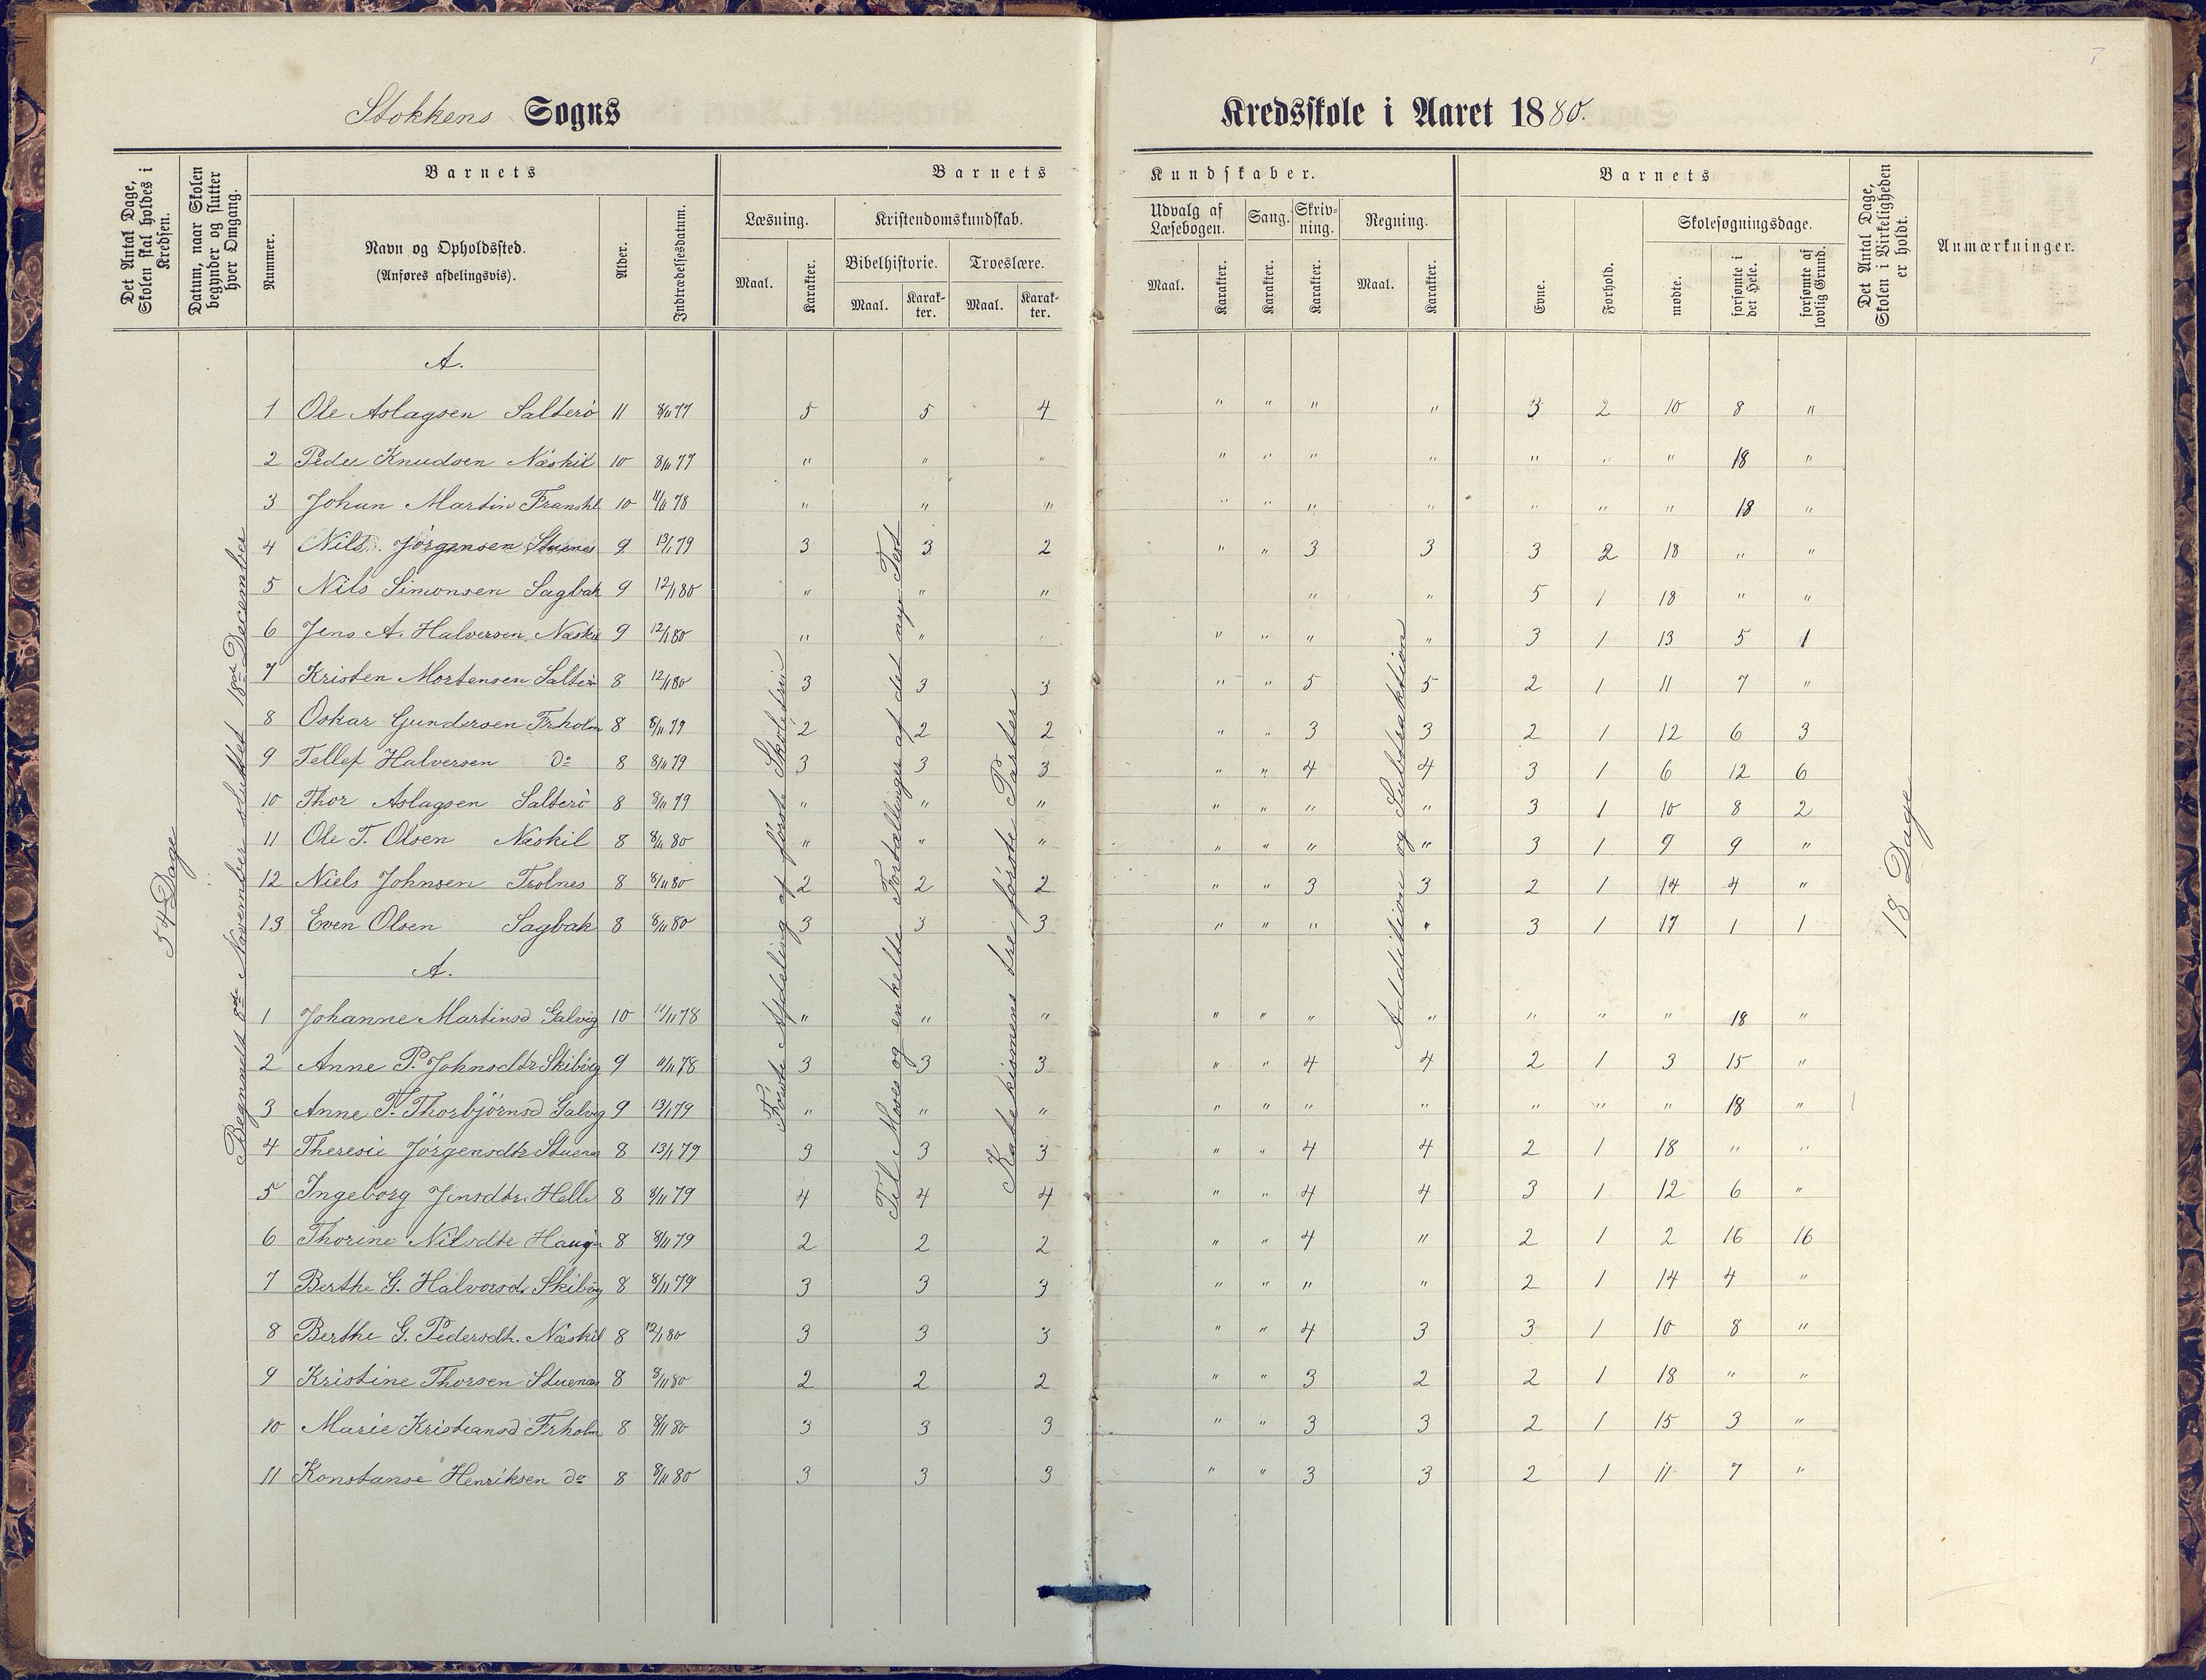 Stokkens Sogns Kredsskole i Aaret 1880.
Det Antal Dage, Skolen skal holdes i Kredsen.
Datum, naar Skolen begynder og slutter hver Omgang.
Barnets
Nummer.
Navn og Opholdssted.
(Anføres afdelingsvis).
Alder.
Indtrædelsesdatum.
Barnets Kundskaber.
Læsning.
Maal. Karakter.
Kristendomskundskab.
Bibelhistorie. Troeslære.
Maal. Karakter. Maal. Karakter.
Udvalg af Læsebogen. Sang. Skrivning. Regning.
Maal. Karakter. Karakter. Karakter. Maal. Karakter.
Barnets
Evne. Forhold.
Skolesøgningsdage.
mødte. forsømte i det Hele. forsømte af lovlig Grund.
Det Antal Dage, Skolen i Virkeligheden er holdt.
Anmærkninger.
54 Dage
Begyndt 8de November sluttet 18de December
Første Afdeling af første Skoletrin
Til Moses og enkelte Fortællinger af det nye Test
Katekismens tre første Parter
Addition og Substraktion
18 Dage
A.
1 Ole Aslagsen Salterö 11 8/11 77 5 5 4 " " " " 3 2 10 8 "
2 Peder Knudsen Næskil 10 8/11 77 " " " " " " " " " " 18 "
3 Johan Martin 10 11/11 78 " " " " " " " " " " 18 "
4 Nils Jörgensen Stuenes 9 13/1 79 3 3 2 " " 3 3 3 2 18 " "
5 Nils Simonsen Sagbak 9 12/1 80 " " " " " 5 1 18 " "
6 Jens A. Halversen Næskil 9 12/1 80 " " " " " " " 3 1 13 5 1
7 Kristen Mortensen Salterö 8 12/1 80 3 3 3 " " 5 5 2 1 11 7 "
8 Oskar Gundersen Frholm 8 8/11 79 2 2 2 " " 3 3 2 1 12 6 3
9 Tellef Halversen do 8 8/11 79 3 3 3 " " 4 4 3 1 6 12 6
10 Thor Aslagsen Salterö 8 8/11 79 " " " " " " " 3 1 10 8 2
11 Ole T. Olsen Næskil 8 8/11 80 " " " " " " " 3 1 9 9 "
12 Niels Johnsen Trolnes 8 8/11 80 2 2 2 " " 3 3 2 1 14 4 "
13 Even Olsen Sagbak 8 8/11 80 3 3 3 " " " " 3 1 17 1 1
A.
1 Johanne Martinsd Galvig 10 11/11 78 " " " " " " " " " " 18 "
2 Anne P. Johnsdtr Skibvig 9 11/11 78 3 3 3 " " 4 4 2 1 3 15 "
3 Anne T. Thorbjörnsd Galvig 9 13/1 79 " " " " " " " " " " 18 "
4 Theresie Jörgensdtr Stuenes 8 13/1 79 3 3 3 " " 4 4 2 1 18 " "
5 Ingeborg Jensdtr. Helle 8 8/11 79 4 4 4 " " 4 4 3 1 12 6 "
6 Thorine Nilsdtr 8 8/11 79 2 2 2 " " 4 " 2 1 2 16 16
7 Berthe G. Halvorsd. Skibvig 8 8/11 79 3 3 3 " " " " 2 1 14 4 "
8 Berthe G. Pedersdtr. Næskil 8 12/1 80 3 3 3 " " 4 3 3 1 10 8 "
9 Kristine Thorsen Stuenes 8 8/11 80 2 2 2 " " 3 2 2 1 18 " "
10 Marie Kristiansd Frholm 8 8/11 80 3 3 3 " " 3 3 2 1 15 3 "
11 Konstanse Henriksen do 8 8/11 80 3 3 3 " " 3 3 2 1 11 7 "